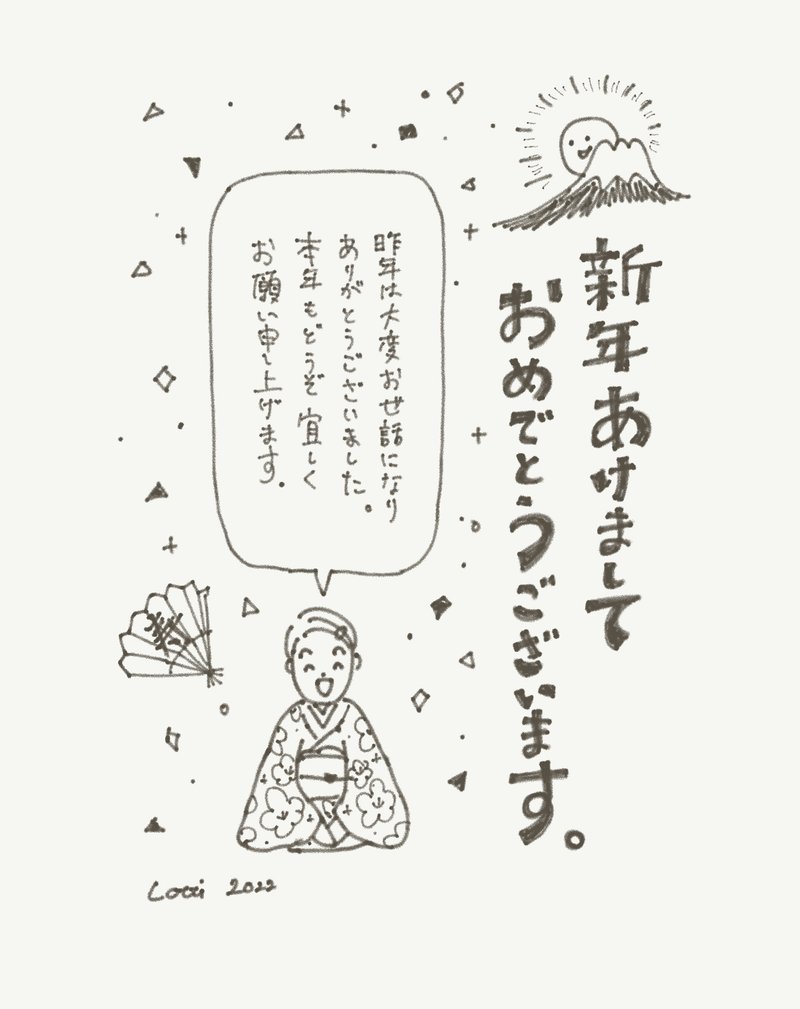 新年あけまして
おめでとうございます。
昨年は大変おせ話になり
ありがとうございました。
本年もどうぞ宜しく
お願い申し上げます。
2022